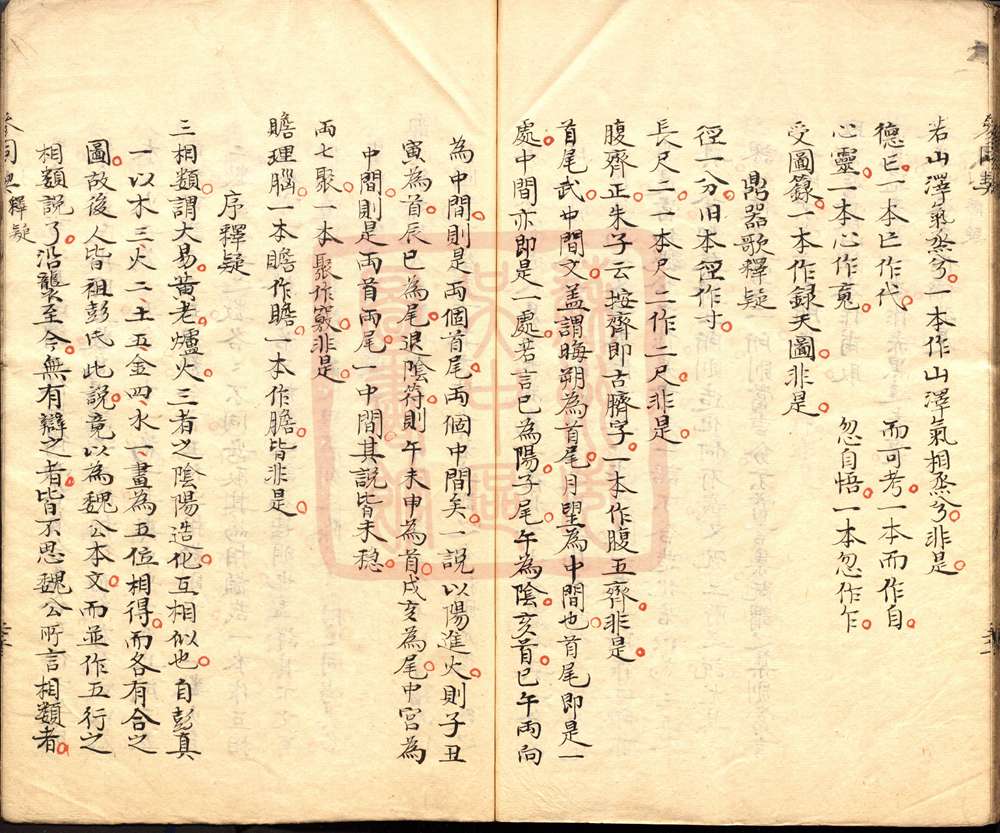 若山澤氣烝兮一本作山澤氣相烝兮非是
德亡一本亡作代 而可考一本而作自
心靈一本心作竟 忽自悟一本忽作乍
受圖籙一本作録天圖非是
鼎器歌釋疑
徑一分旧本徑作寸
長尺二一本尺二作二尺非是
腹齊正朱子云按齊即古臍字一本作腹五齊非是
首尾武中間文盖謂晦朔為首尾月望為中間也首尾即是一
處中間亦即是一處若言巳為陽子尾午為陰亥首巳午兩向
為中間則是兩個首尾兩個中間矣一説以陽進火則子丑
寅為首辰巳為尾退陰符則午未申為首戌亥為尾中宮為
中間則是兩首兩尾一中間其説皆未穏
兩七聚一本聚作竅非是
贍理腦一本贍作瞻一本作膽皆非是
序釋疑
三相類謂大易黄老爐火三者之陰陽造化互相似也自彭真
一以木三火二土五金四水一畫為五位相得而各有合之
圖故後人皆祖彭氏此説竟以為魏公本文而並作五行之
相類説了沿襲至今無有辯之者皆不思魏公所言相類者
參同契釋疑